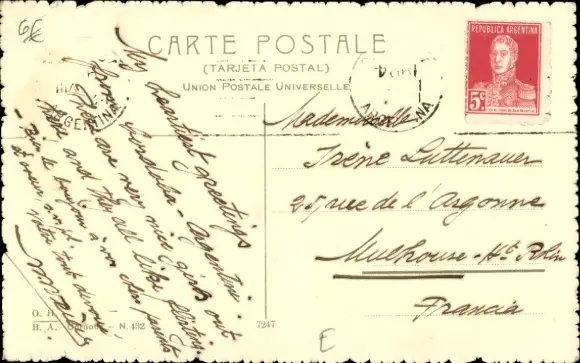 6£
CARTE POSTALE
(TARJETA POSTAL)
UNION POSTALE UNIVERSELLE
REPUBLICA ARGENTINA
5c
ARGENTINA
NA
My heartiest greetings
from Cordoba - Argentine
There are very nice girls out
here and they all like flirting
Mademoiselle
Irène Luttenauer
25 rue de l'Argonne
Mulhouse - Ht Rhin
Francia
O. H.
B. A. Cordoba - N. 492
7247
E